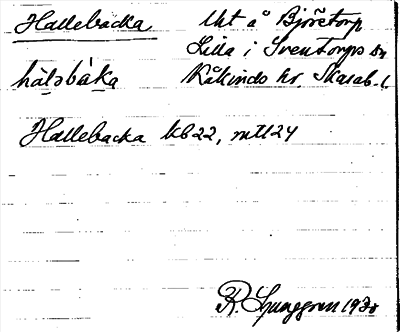 Hallebacka Uht å Björstorp
Lilla i Sventorps sn
hàləbáka Kåkinds hd. Skarab. l.
Hallebacka kb 22, mtl 24
R. Ljunggren 1930